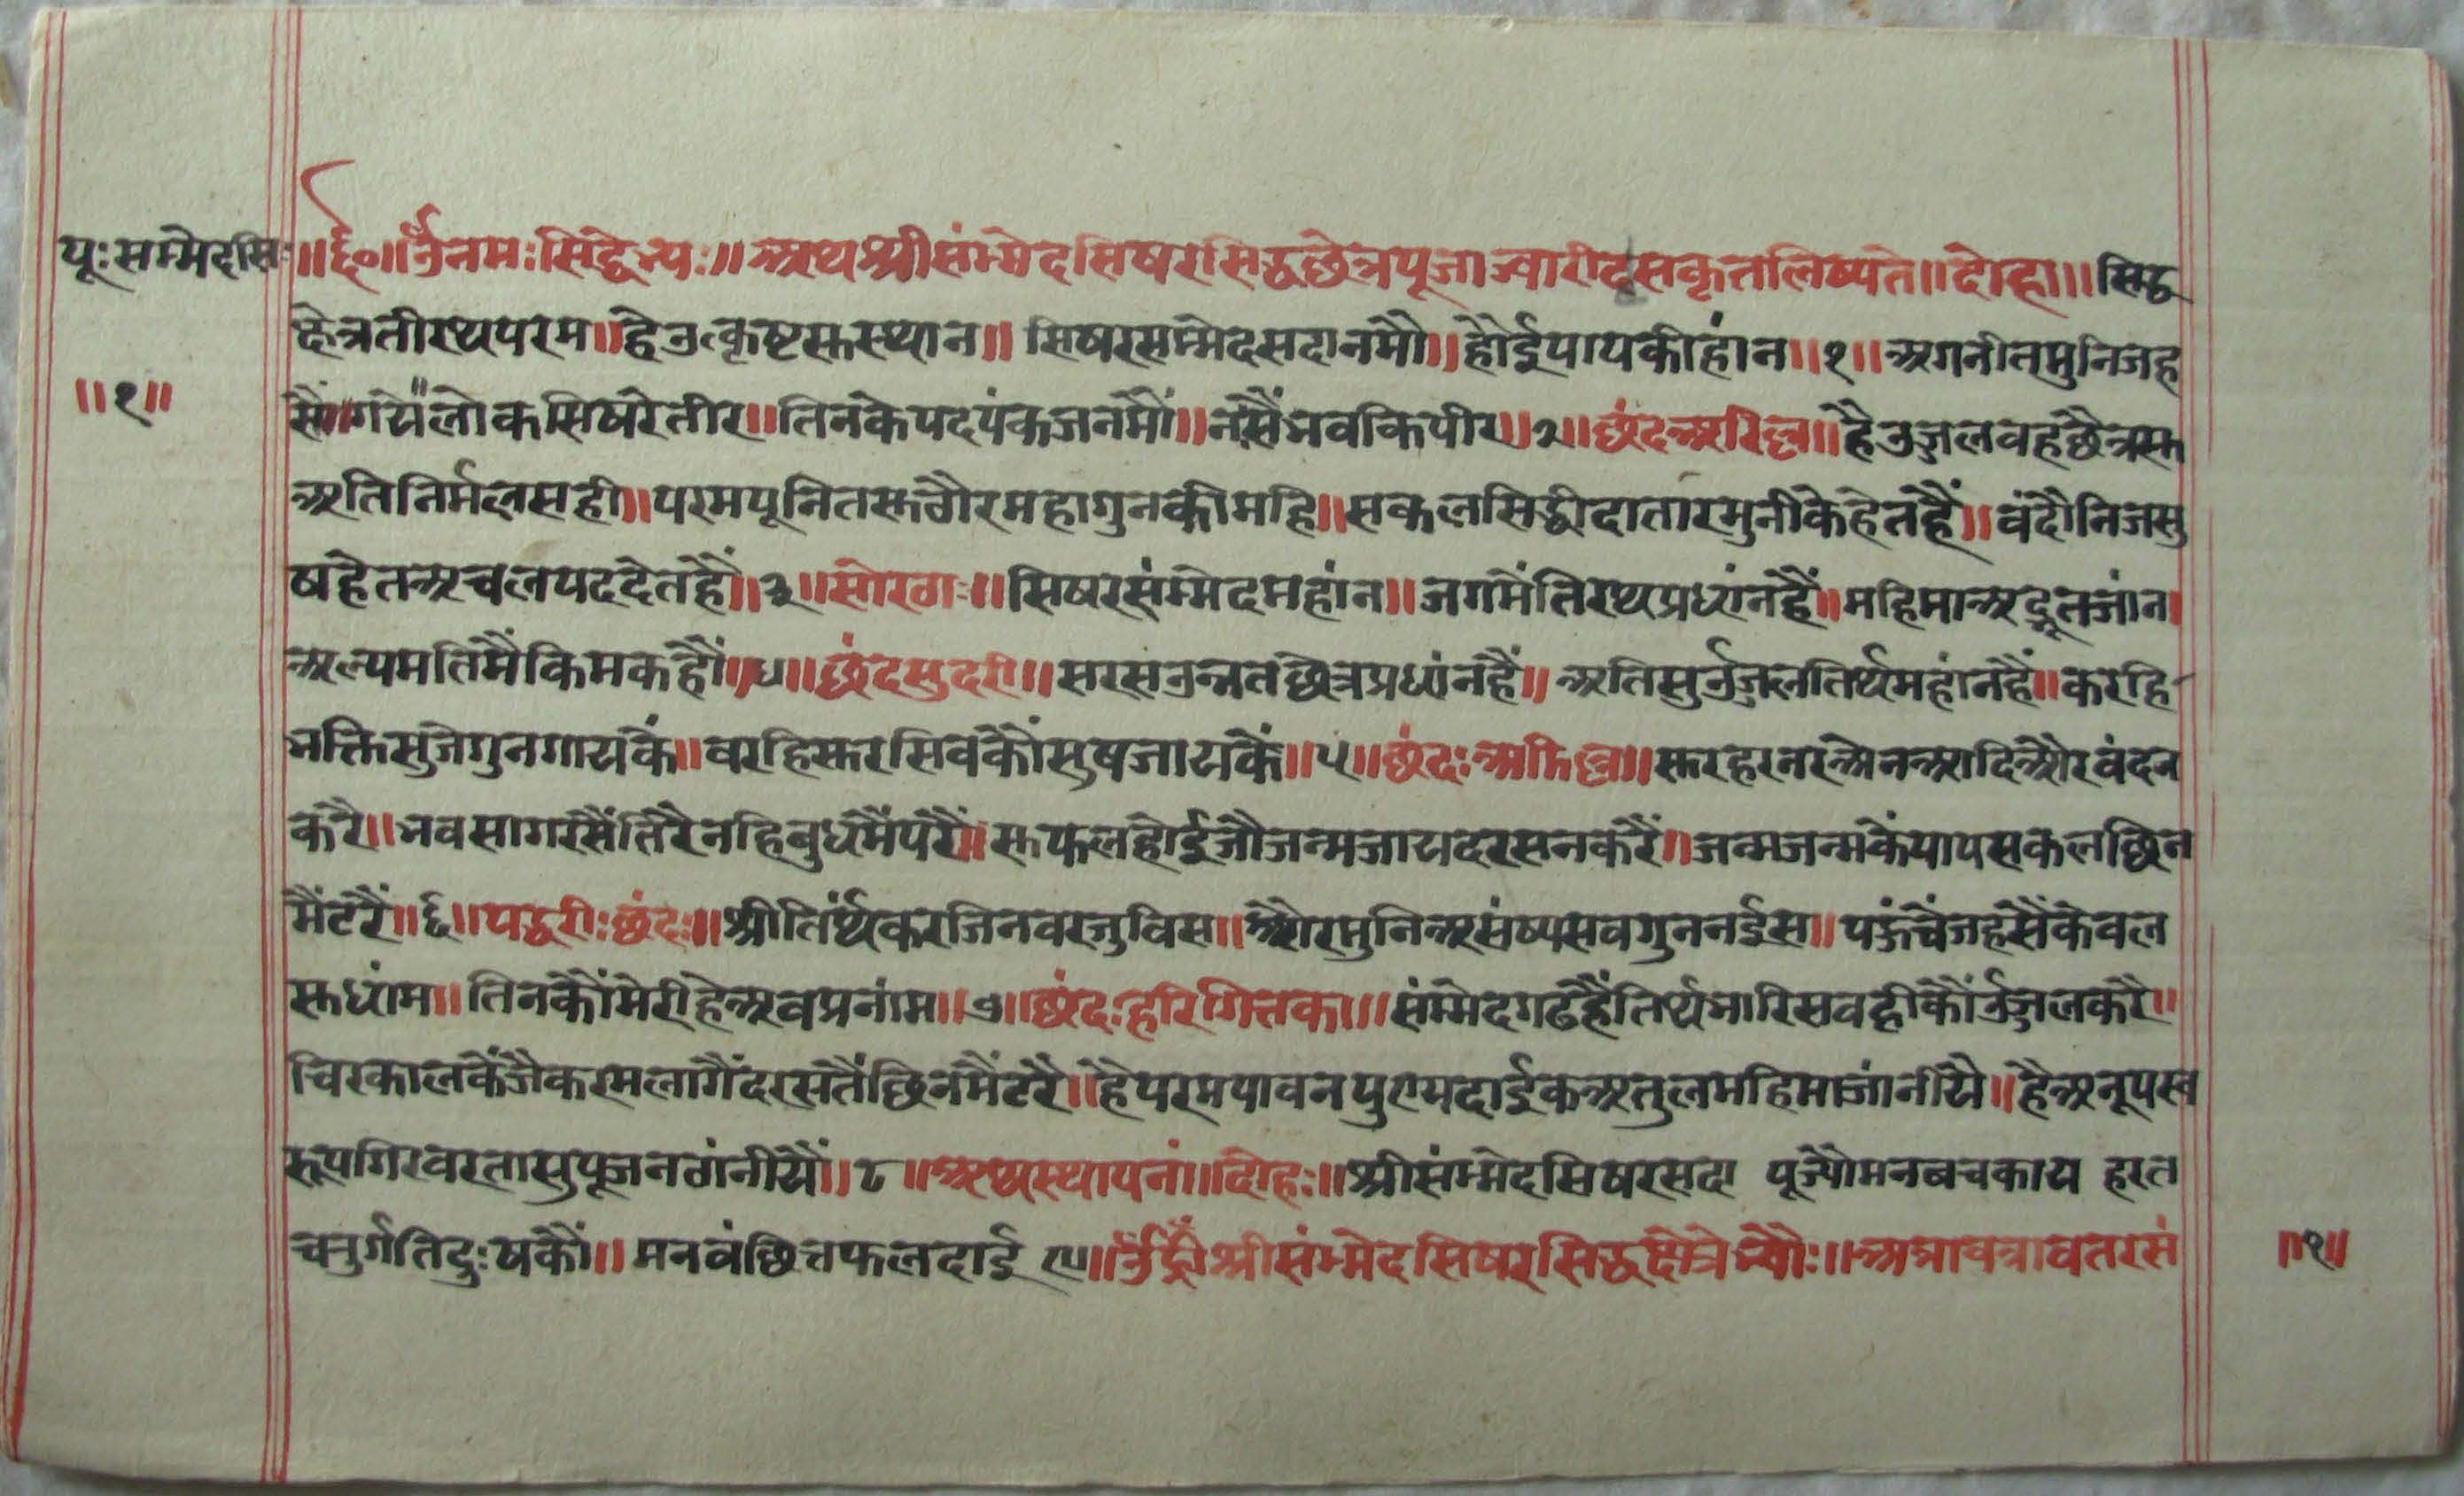 पूःसम्मेदसिः॥६०॥ॐनमःसिद्धेभ्यः॥अथश्रीसंम्मेदसिषरसिद्धछेत्रपूजाज्वारीदसकृतलिष्यते॥दोहा॥सिद्ध
छेत्रतीरथपरम॥हैउत्कृष्टसुस्थान॥सिषरसम्मेदसदानमौ॥हौईपापकीहांन॥१॥अगनीतमुनिजह
॥१॥
सौं॥गये॥लोकसिषरेतीर॥तिनकेपदपंकजनमौं॥नसैंभवकिपीर॥२॥छंदअरिल्ल॥हैउज्जलवहछैत्रसु
अतिनिर्मलसही॥परमपूनितसुठौरमहागुनकीमहि॥सकलसिद्धीदातारमुनीकेहेतहैं॥वंदौनिजसु
षहेतअचलपददेतहैं॥३॥सोरठाः॥सिषरसंम्मेदमहांन॥जगमैंतिरथप्रधांनहैं॥महिमाअद्भूतजांन॥
अल्पमतिमैंकिमकहौं॥४॥छंदसुदरी॥सरसउन्नतछेत्रप्रधांनहैं॥अतिसुउज्जलतिर्थमहांनहैं॥करहि
भक्तिसुजेगुनगायकैं॥वरहिसुरसिवकौंसुषजायकैं॥५॥छंदःअरिल्ल॥सुरहरनरअेनआदिऔरवंदन
करै॥भवसागरसैंतिरैनहिवुधमैंपरैं॥सुफलहोईजौजन्मजायदरसनकरैं॥जन्मजन्मकेंपापसकलछिन
मैंटरैं॥६॥पद्धरीःछंदः॥श्रीतिर्थंकरजिनवरजुविस॥औरमुनिअसंष्यसवगुननईस॥पऊंचैंजहसैंकेवल
सुधांम॥तिनकौंमेरीहेअवप्रनांम॥७॥छंदःहरिगित्तका॥संम्मेदगढहैंतिर्थभारिसवहीकौंउज्जलकरै॥
चिरकालकेंजैकरमलागैंदरसतैंछिनमैंटरै॥हैपरमपावनपुण्यदाईकअतुलमहिमाजांनीये॥हैअनूपस्व
रूपगिरवरतासुपूजनठांनीयैं॥८॥अथस्थापनां॥दोहः॥श्रीसंम्मेदसिषरसदा पूज्यौमनबचकाय हरत
चतुर्गतिदुःषकौं॥मनवंछितफलदाई ९॥ॐह्रींश्रीसंम्मेदसिषरसिद्धछेत्रेभ्योः॥अत्रावत्रावतरसं
॥१॥